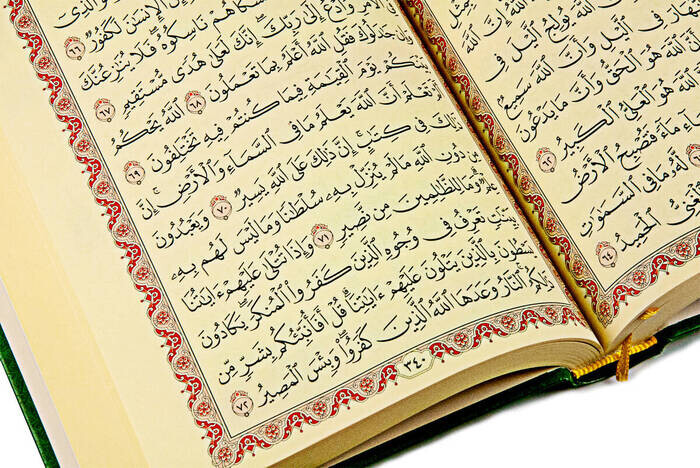 ٱللَّهُ إِنَّ ٱللَّهَ
ٱللَّهَ يُولِجُ ٱلَّيْلَ فِى
ٱلنَّهَارَ فِى ٱلَّيْلِ وَأَنَّ ٱللَّهَ سَمِيعٌۢ
ٱللَّهَ هُوَ ٱلْحَقُّ وَأَنَّ مَا يَدْعُونَ
ٱللَّهَ هُوَ ٱلْعَلِىُّ ٱلْكَبِيرُ ٦٢
مَآءً فَتُصْبِحُ ٱلْأَرْضُ
٦٣ لَهُۥ مَا فِى ٱلسَّمَٰوَٰتِ
ٱلْحَمِيدُ ٦٤
ٱلَّذِىٓ
ٱلْإِنسَٰنَ لَكَفُورٌ ٦٦
هُمْ نَاسِكُوهُ فَلَا يُنَٰزِعُنَّكَ
ٱلْأَمْرِ وَٱدْعُ إِلَىٰ رَبِّكَ إِنَّكَ لَعَلَىٰ هُدًى مُّسْتَقِيمٍ ٦٧
وَإِن جَٰدَلُوكَ فَقُلِ ٱللَّهُ أَعْلَمُ بِمَا تَعْمَلُونَ ٦٨ ٱللَّهُ يَحْكُمُ
بَيْنَكُمْ يَوْمَ ٱلْقِيَٰمَةِ فِيمَا كُنتُمْ فِيهِ تَخْتَلِفُونَ ٦٩
تَعْلَمْ أَنَّ ٱللَّهَ يَعْلَمُ مَا فِى ٱلسَّمَآءِ وَٱلْأَرْضِ إِنَّ
ذَٰلِكَ فِى كِتَٰبٍ إِنَّ ذَٰلِكَ عَلَى ٱللَّهِ يَسِيرٌ ٧٠ وَيَعْبُدُونَ
مِن دُونِ ٱللَّهِ مَا لَمْ يُنَزِّلْ بِهِۦ سُلْطَٰنًا وَمَا لَيْسَ لَهُم بِهِۦ
عِلْمٌ وَمَا لِلظَّٰلِمِينَ مِن نَّصِيرٍ ٧١ وَإِذَا تُتْلَىٰ عَلَيْهِمْ ءَايَٰتُنَا
بَيِّنَٰتٍ تَعْرِفُ فِى وُجُوهِ ٱلَّذِينَ كَفَرُوا۟ ٱلْمُنكَرَ يَكَادُونَ
يَسْطُونَ بِٱلَّذِينَ يَتْلُونَ عَلَيْهِمْ ءَايَٰتِنَا قُلْ أَفَأُنَبِّئُكُم بِشَرٍّ مِّن
ذَٰلِكُمُ ٱلنَّارُ وَعَدَهَا ٱللَّهُ ٱلَّذِينَ كَفَرُوا۟ وَبِئْسَ ٱلْمَصِيرُ ٧٢
٣٤٠